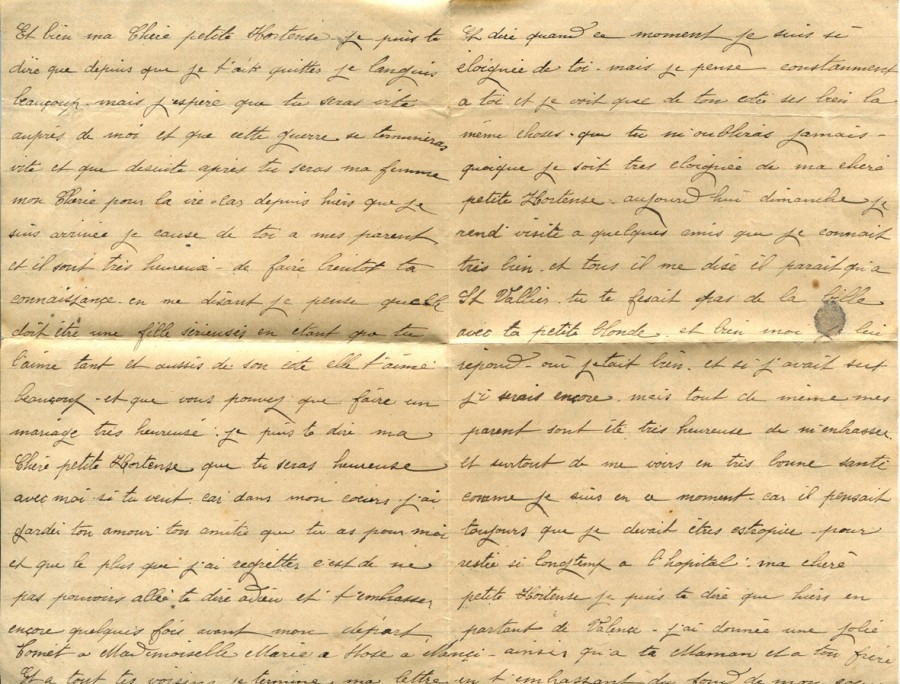 Et bien ma Chère petite Hortense je puis te
dire que depuis que je t'aie quitter je languis
beaucoup. mais j'espère que tu seras vite
auprès de moi et que cette guerre se termineras
vite et que desuite après tu seras ma femme
mon Cherie pour la vie - Car depuis hiers que je
suis arrivée je cause de toi a mes parent
et il sont très heureux - de faire bientot ta
connaissance. en me disant je pense quelle
doit être une fille sérieuses en etant que tu
l'aime tant et aussis de son coté elle t'aime
beaucoup - et que vous pouvez que faire un
mariage très heureuse. je puis te dire ma
Chère petite Hortense que tu seras heureuse
avec moi si tu veut. car dans mon coeurs j'ai
garder ton amour ton amitie que tu as pour moi
et que le plus que j'ai regretter c'est de ne
pas pouvoirs allé te dire adieu et t'embrasser
encore quelques fois avant mon départ
Comét a Mademoiselle Marie a Rose a Nançi - ainsi qu'a ta Maman et a ton frère
Et a tout tes voisins je termine ma lettre en t'embrassant du fond de mon
Et dire quand ce moment je suis si
éloignée de toi - mais je pense constanment
a toi et je voit que de ton coté ses bien la
même choses - que tu m'oubliras jamais -
quoique je soit tres eloignée de ma chère
petite Hortense - aujourd'hui dimanche je
rend visite a quelques amis que je connait
très bien. et tous il me dise il parait qu'a
St Vallier. tu te fesait pas de la bille
avec ta petite blonde. et bien moi lui
répond - oui jetait bien. et si j'avait sut
j'i serais encore. mais tout de même mes
parent sont été très heureuse de m'enbrasser.
et surtout de me voirs en très bonne santé
comme je suis en ce moment. car il pensait
toujours que je devait êtres estropiée - pour
restée si longtemp a l'hopital. ma chère
petite Hortense je puis te dire que hiers en
partant de Valence - j'ai donnée une jolie